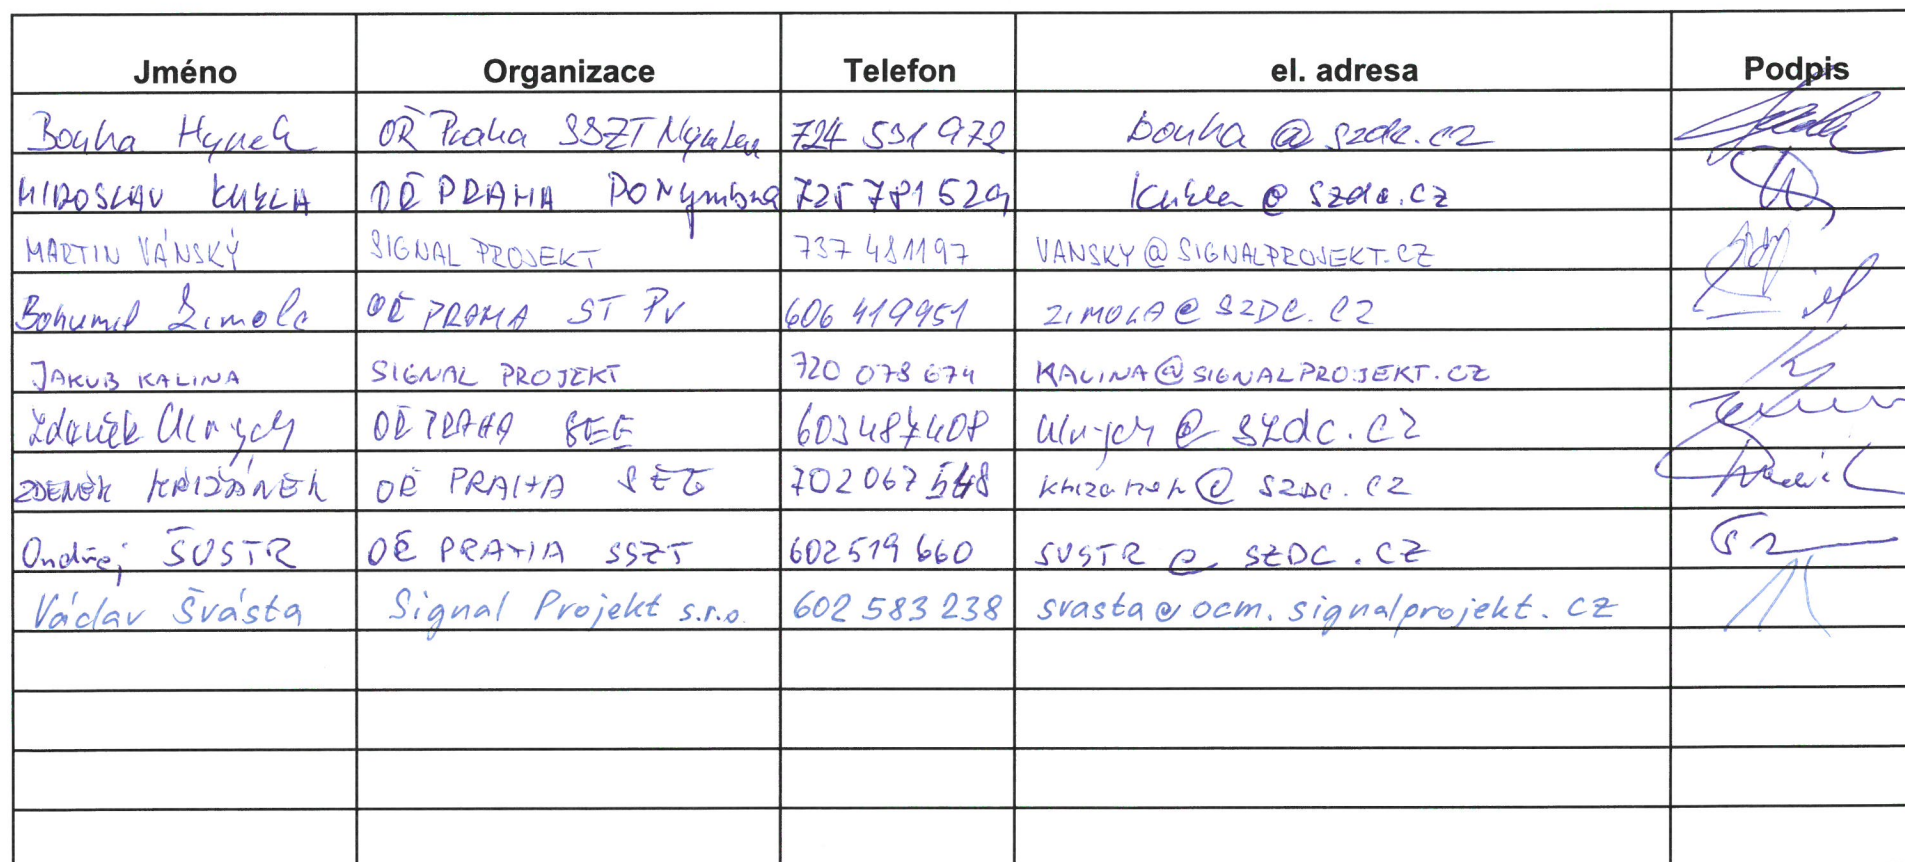 Jméno Organizace Telefon el. adresa Podpis
Bouha Hynek OŘ Praha SSZT Nymburk 724 531 972 bouha @ szdc.cz
MIROSLAV KUKLA OŘ PRAHA PO Nymburk 725 781 529 kukla @ szdc.cz
MARTIN VÁNSKÝ SIGNAL PROJEKT 737 481197 VANSKY@SIGNALPROJEKT.CZ
Bohumil Zimola OŘ PRAHA ST PV 606 419951 ZIMOLA@SZDC.CZ
JAKUB KALINA SIGNAL PROJEKT 720 073 674 KALINA@SIGNALPROJEKT.CZ
Zdeněk Ulrych OŘ PRAHA SEE 603487408 ulrych @ szdc.cz
ZDENĚK KŘIŽÁNEK OŘ PRAHA SEE 702 067 548 krizanek@szdc.cz
Ondřej ŠUSTR OŘ PRAHA SSZT 602 519 660 SUSTR @ SZDC.CZ
Václav Švásta Signal Projekt s.r.o. 602 583 238 svasta@ocm.signalprojekt.cz